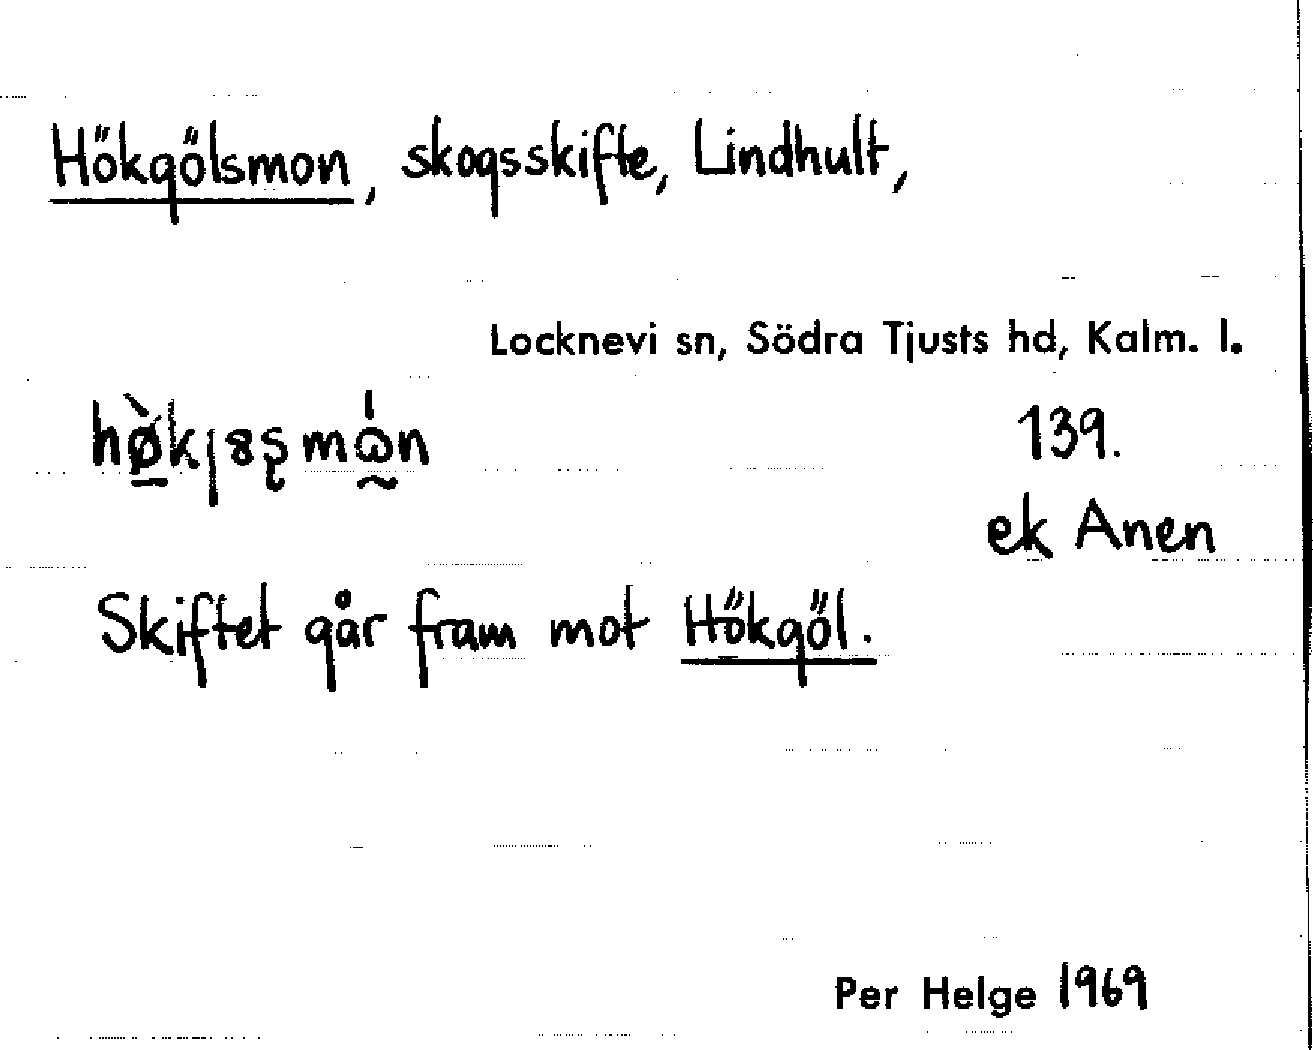 Hökgölsmon, skogsskifte, Lindhult,
Locknevi sn, Södra Tjusts hd, Kalm. l.
139.
ek Anen
Skiftet går fram mot Hökgöl.
Per Helge 1969